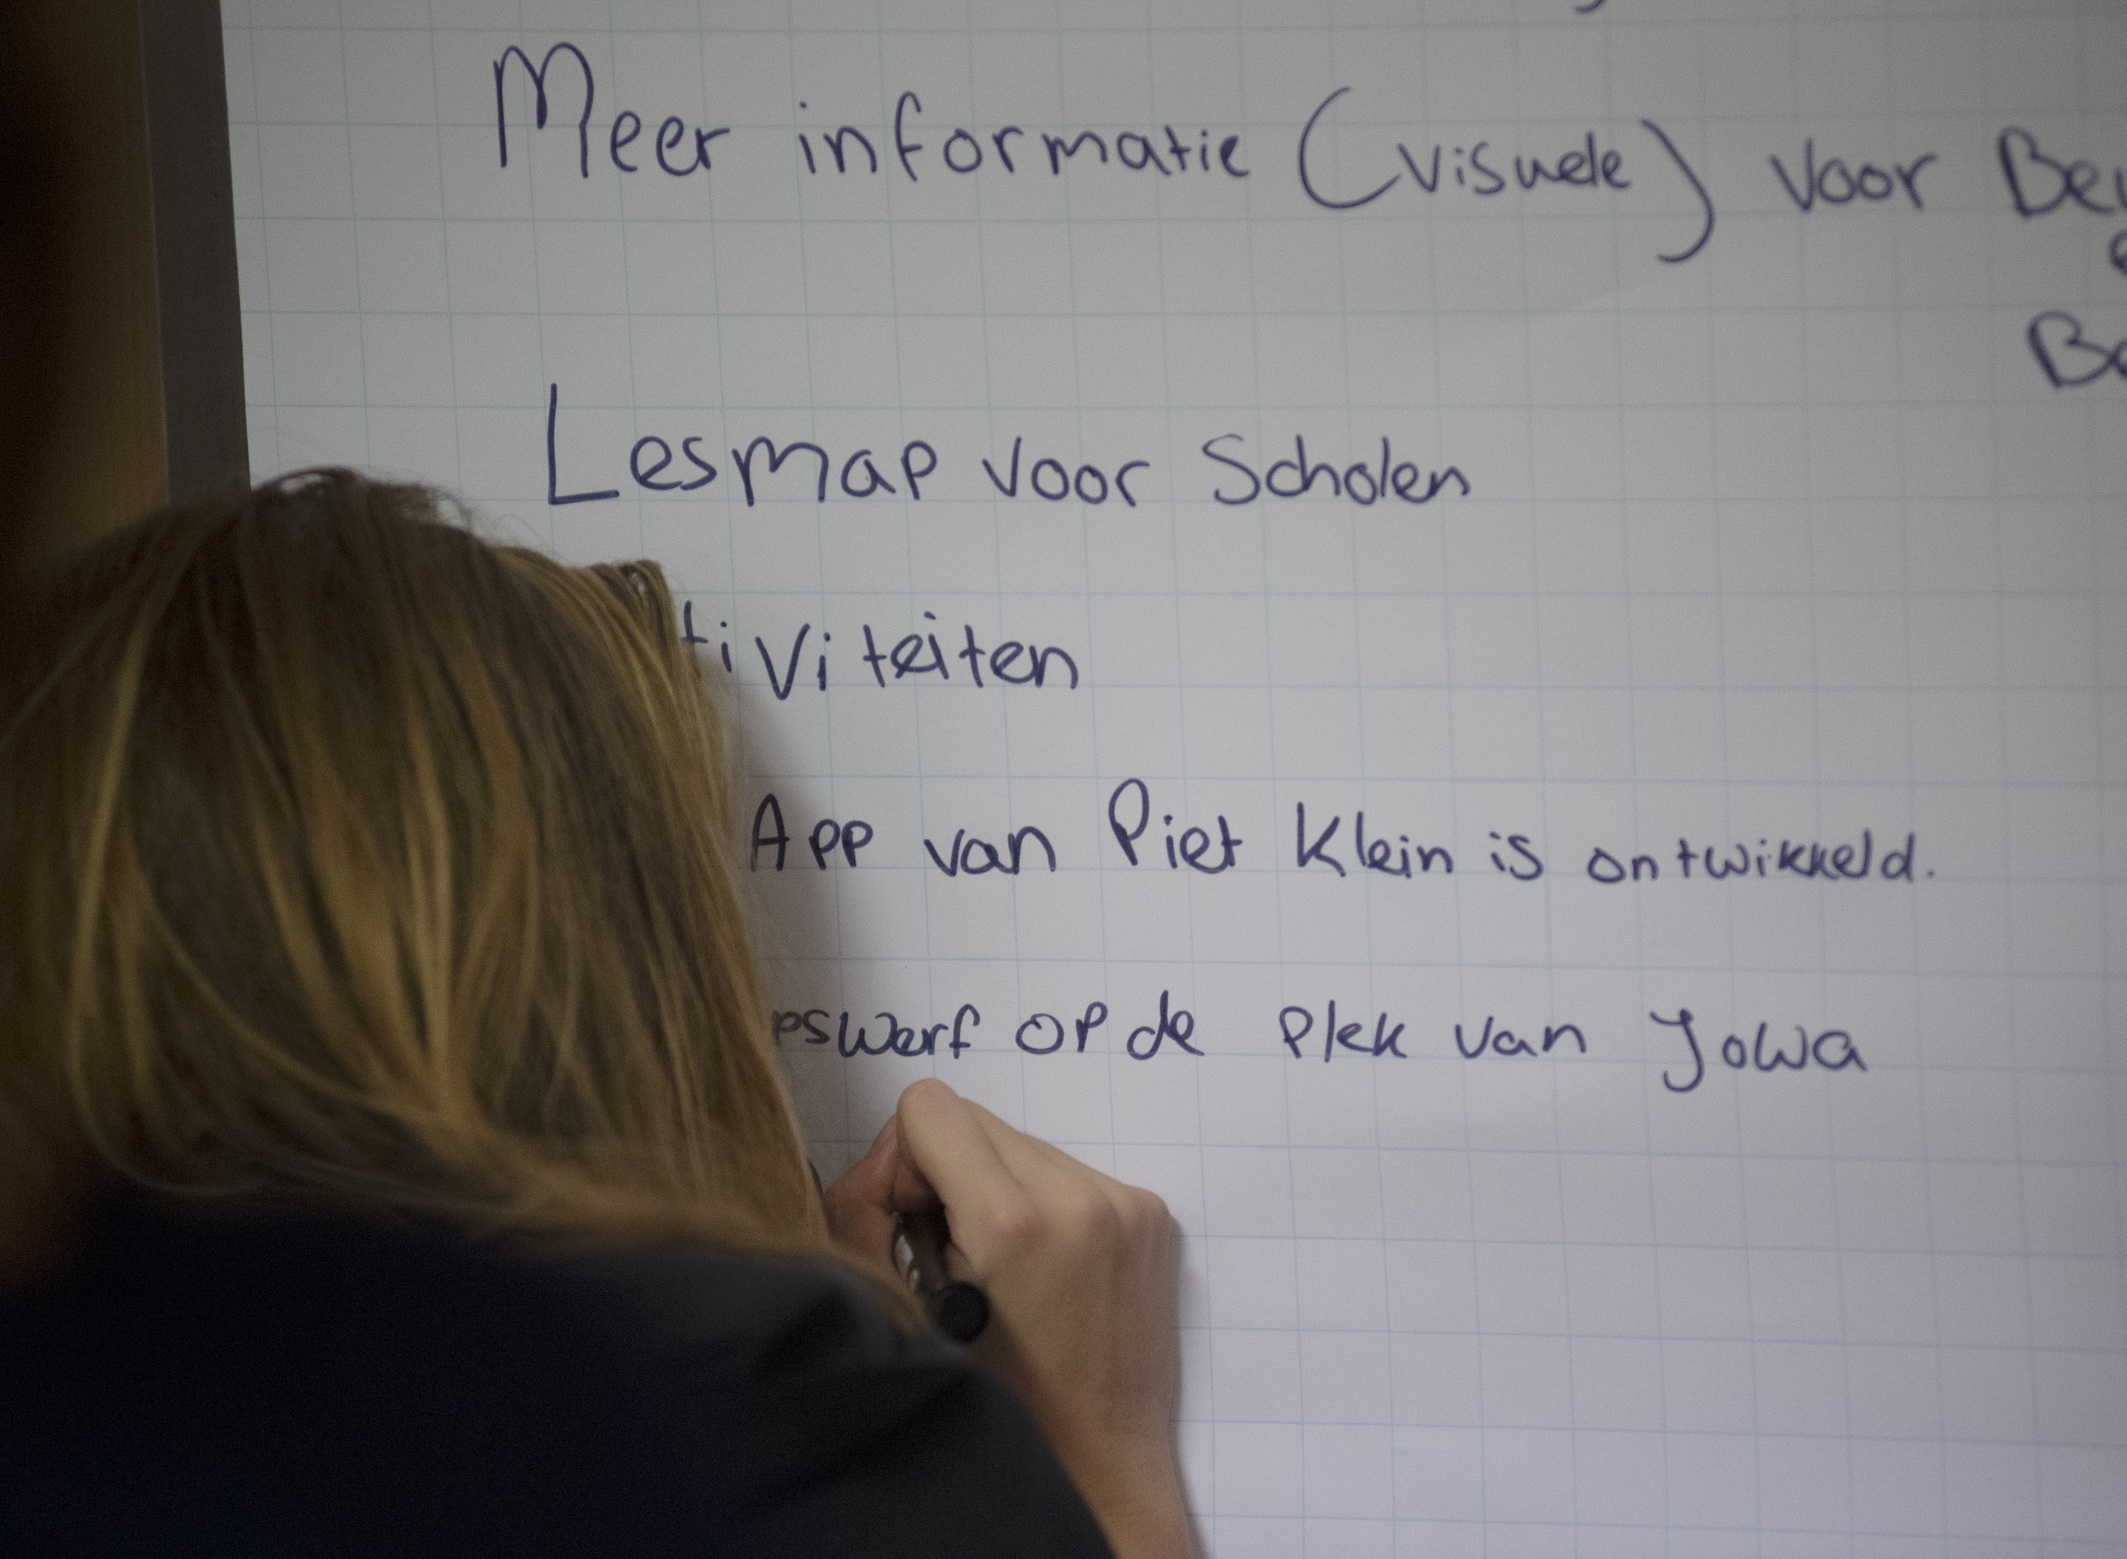 Meer informatie (visuele) voor
Lesmap voor Scholen
App van Piet Klein is ontwikkeld.
op de plek van Jowa